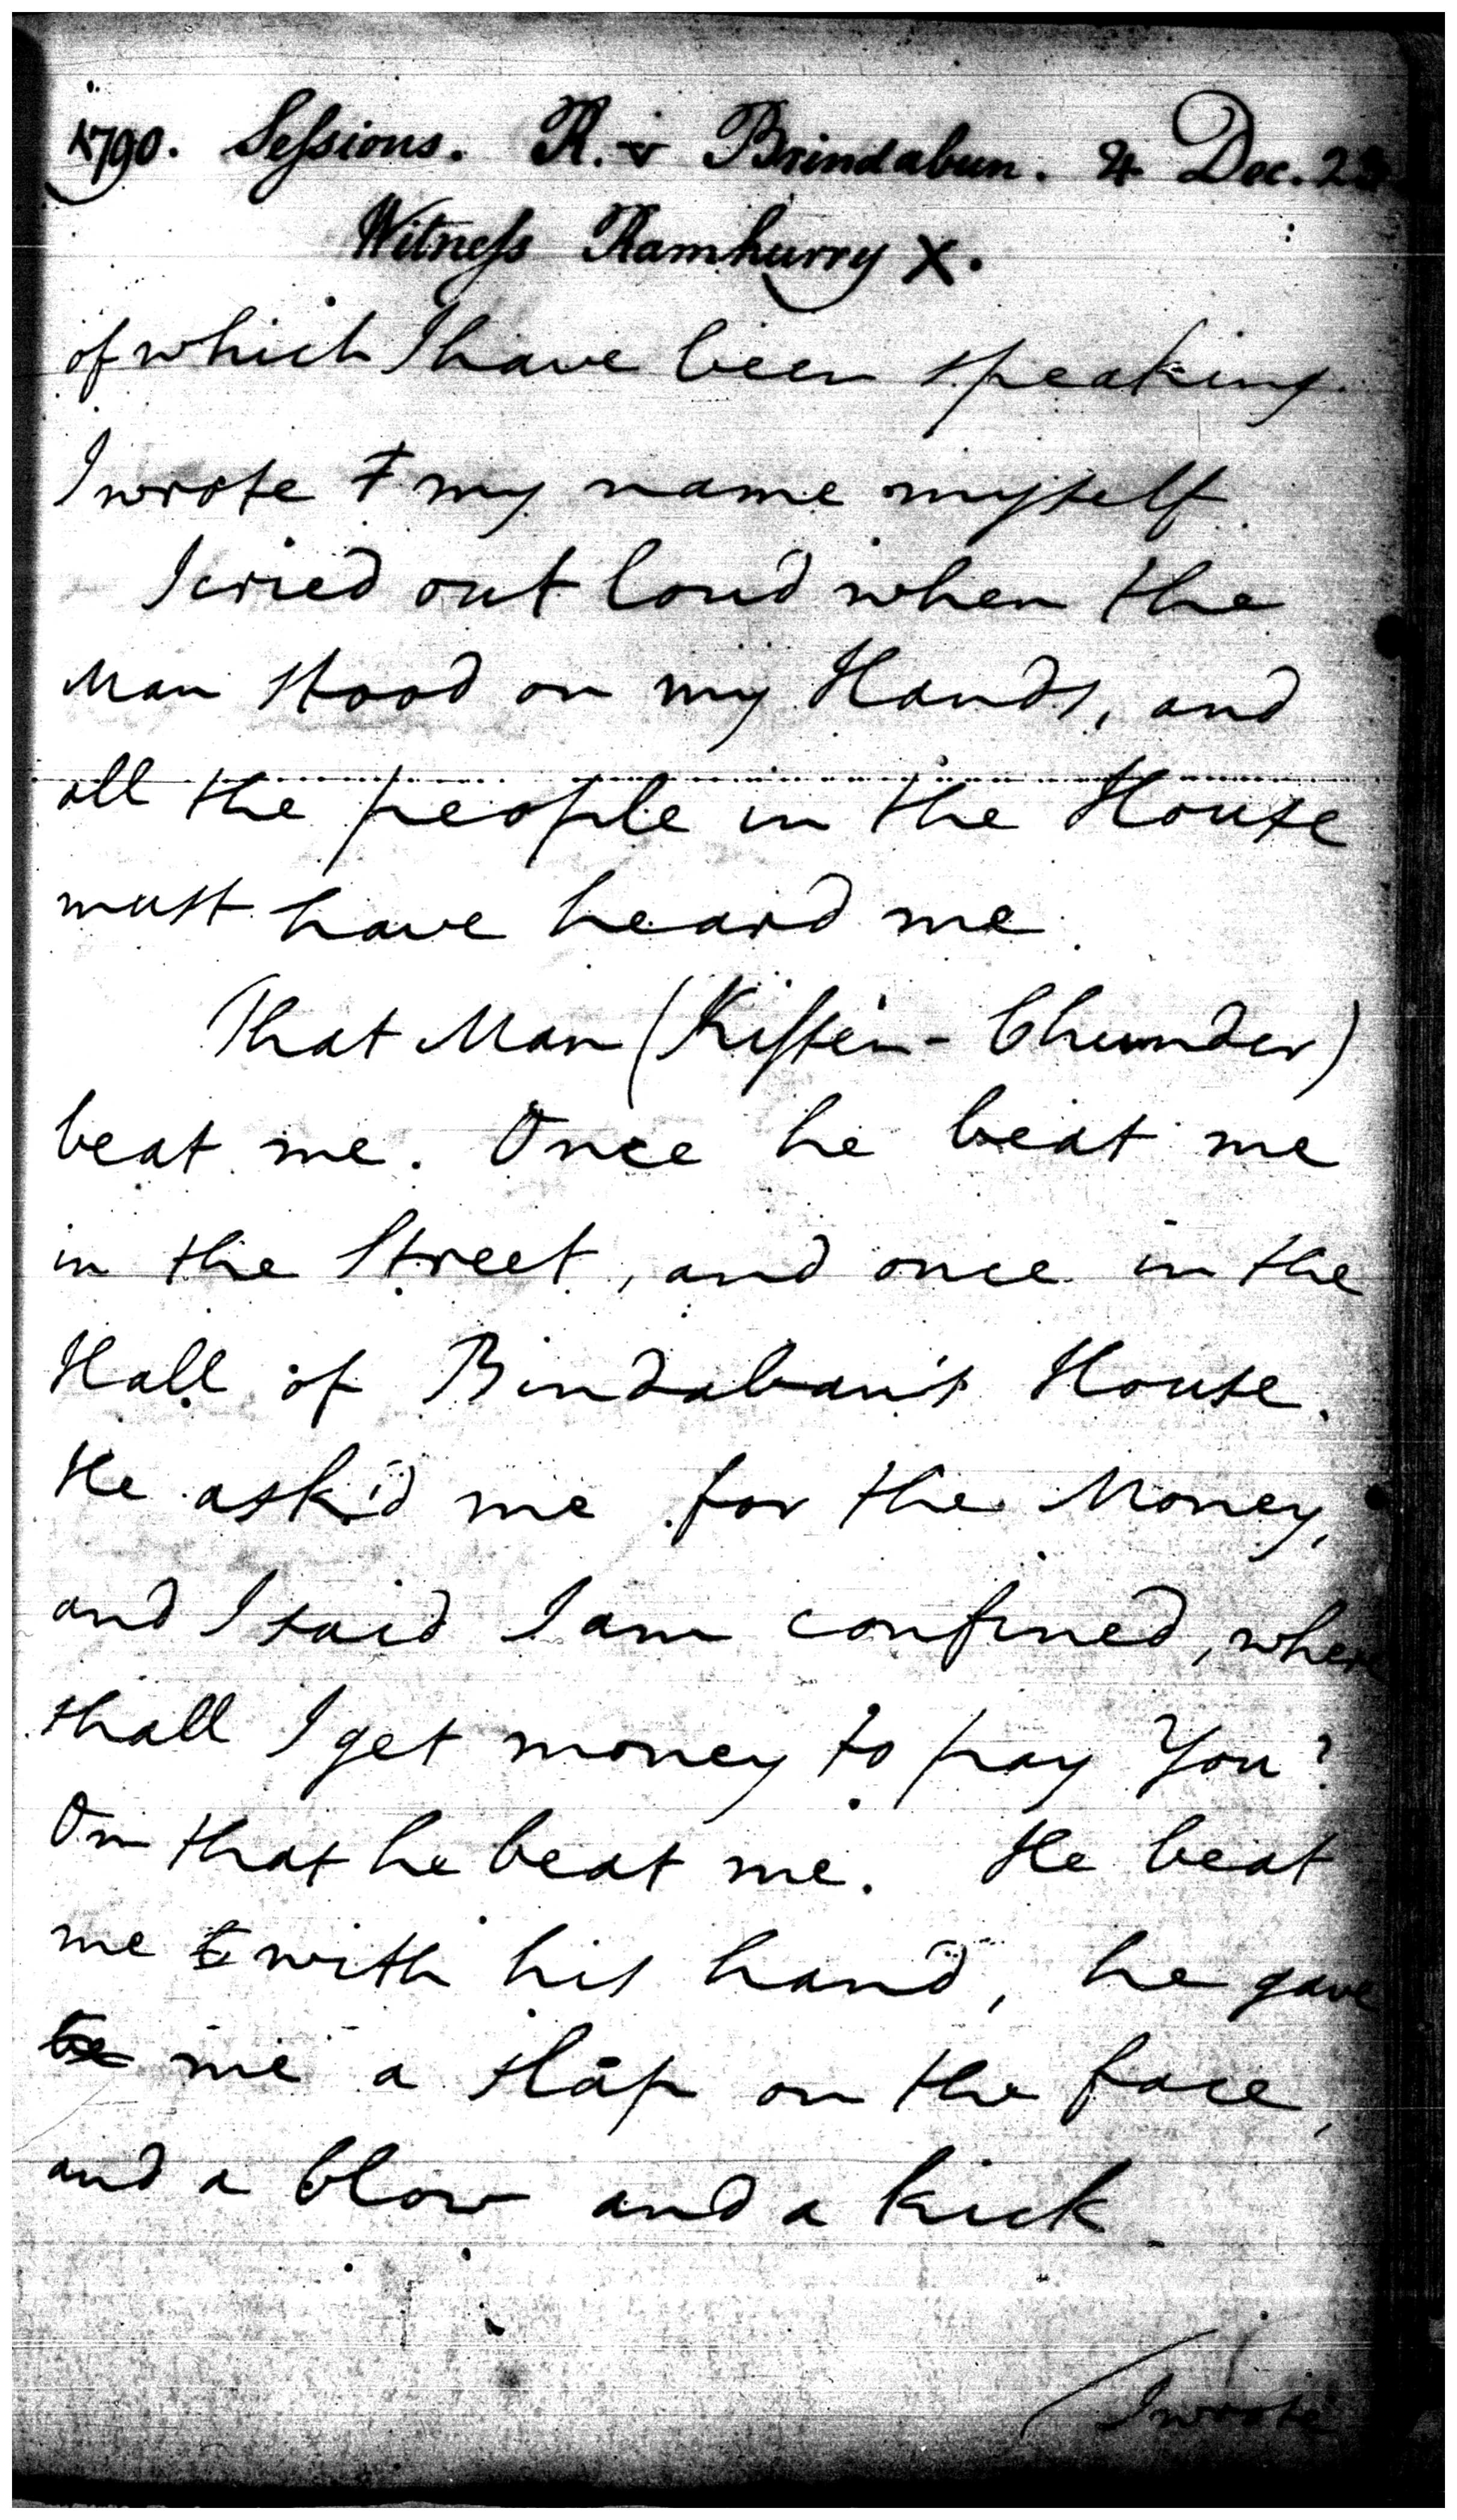 1790. Sessions. R. v Brindabun. 4 Dec. 23
Witness Ramhurry X.
of which I have been speaking.
I wrote my name myself.
I cried out loud when the
Man stood on my Hands, and
all the people in the House
must have heard me.
That Man (Kissen-Chunder)
beat me. Once he beat me
in the Street, and once in the
Hall of Bindaban's House.
He ask'd me for the Money,
and I said I am confined, where
shall I get money to pay You?
On that he beat me. He beat
me with his hand, he gave
me a slap on the face,
and a blow and a kick
I wrote